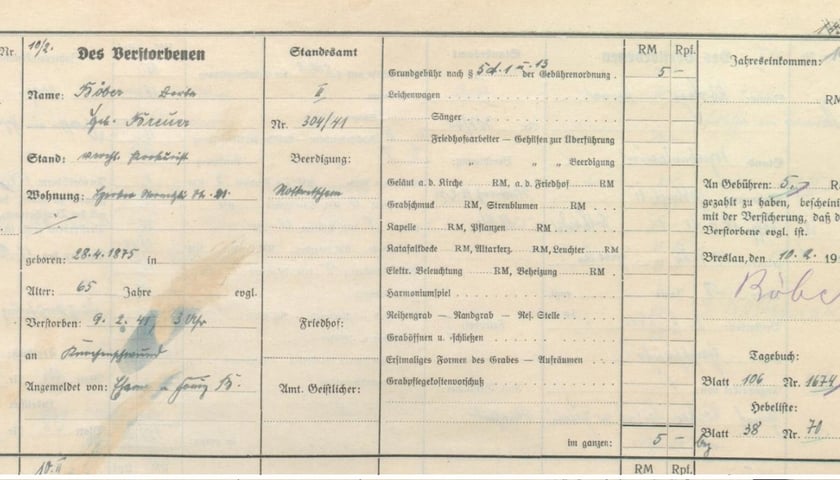 Nr.
10/2.
Des Verstorbenen
Name: Röber Berta
geb. Kreuer
Stand:
Wohnung:
geboren: 28.4.1875 in
Alter: 65 Jahre evgl.
Verstorben: 9. 2. 41 3 Uhr
an
Angemeldet von: Franz R.
10. II
Standesamt
II
Nr. 304/41
Beerdigung:
Friedhof:
Amt. Geistlicher:
RM Rpf.
Grundgebühr nach § 5d.1 u. 13 der Gebührenordnung . 5 –
Leichenwagen
Sänger
Friedhofsarbeiter — Gehilfen zur Überführung
„ „ Beerdigung
Geläut a. d. Kirche RM, a. d. Friedhof RM
Grabschmuck RM, Streublumen RM
Kapelle RM, Pflanzen RM
Katafalkdecke RM, Altarkerz. RM, Leuchter RM
Elektr. Beleuchtung RM, Beheizung RM
Harmoniumspiel
Reihengrab — Randgrab — Res. Stelle
Graböffnen u. -schließen
Erstmaliges Formen des Grabes — Aufräumen
Grabpflegekostenvorschuß
im ganzen: 5 –
RM Rpf.
Jahreseinkommen:
RM
An Gebühren: 5.- R
gezahlt zu haben, bescheini
mit der Versicherung, daß d
Verstorbene evgl. ist.
Breslau, den 10. 2. 19
Röbe
Tagebuch:
Blatt 106 Nr. 1674
Hebeliste:
Blatt 38 Nr. 70